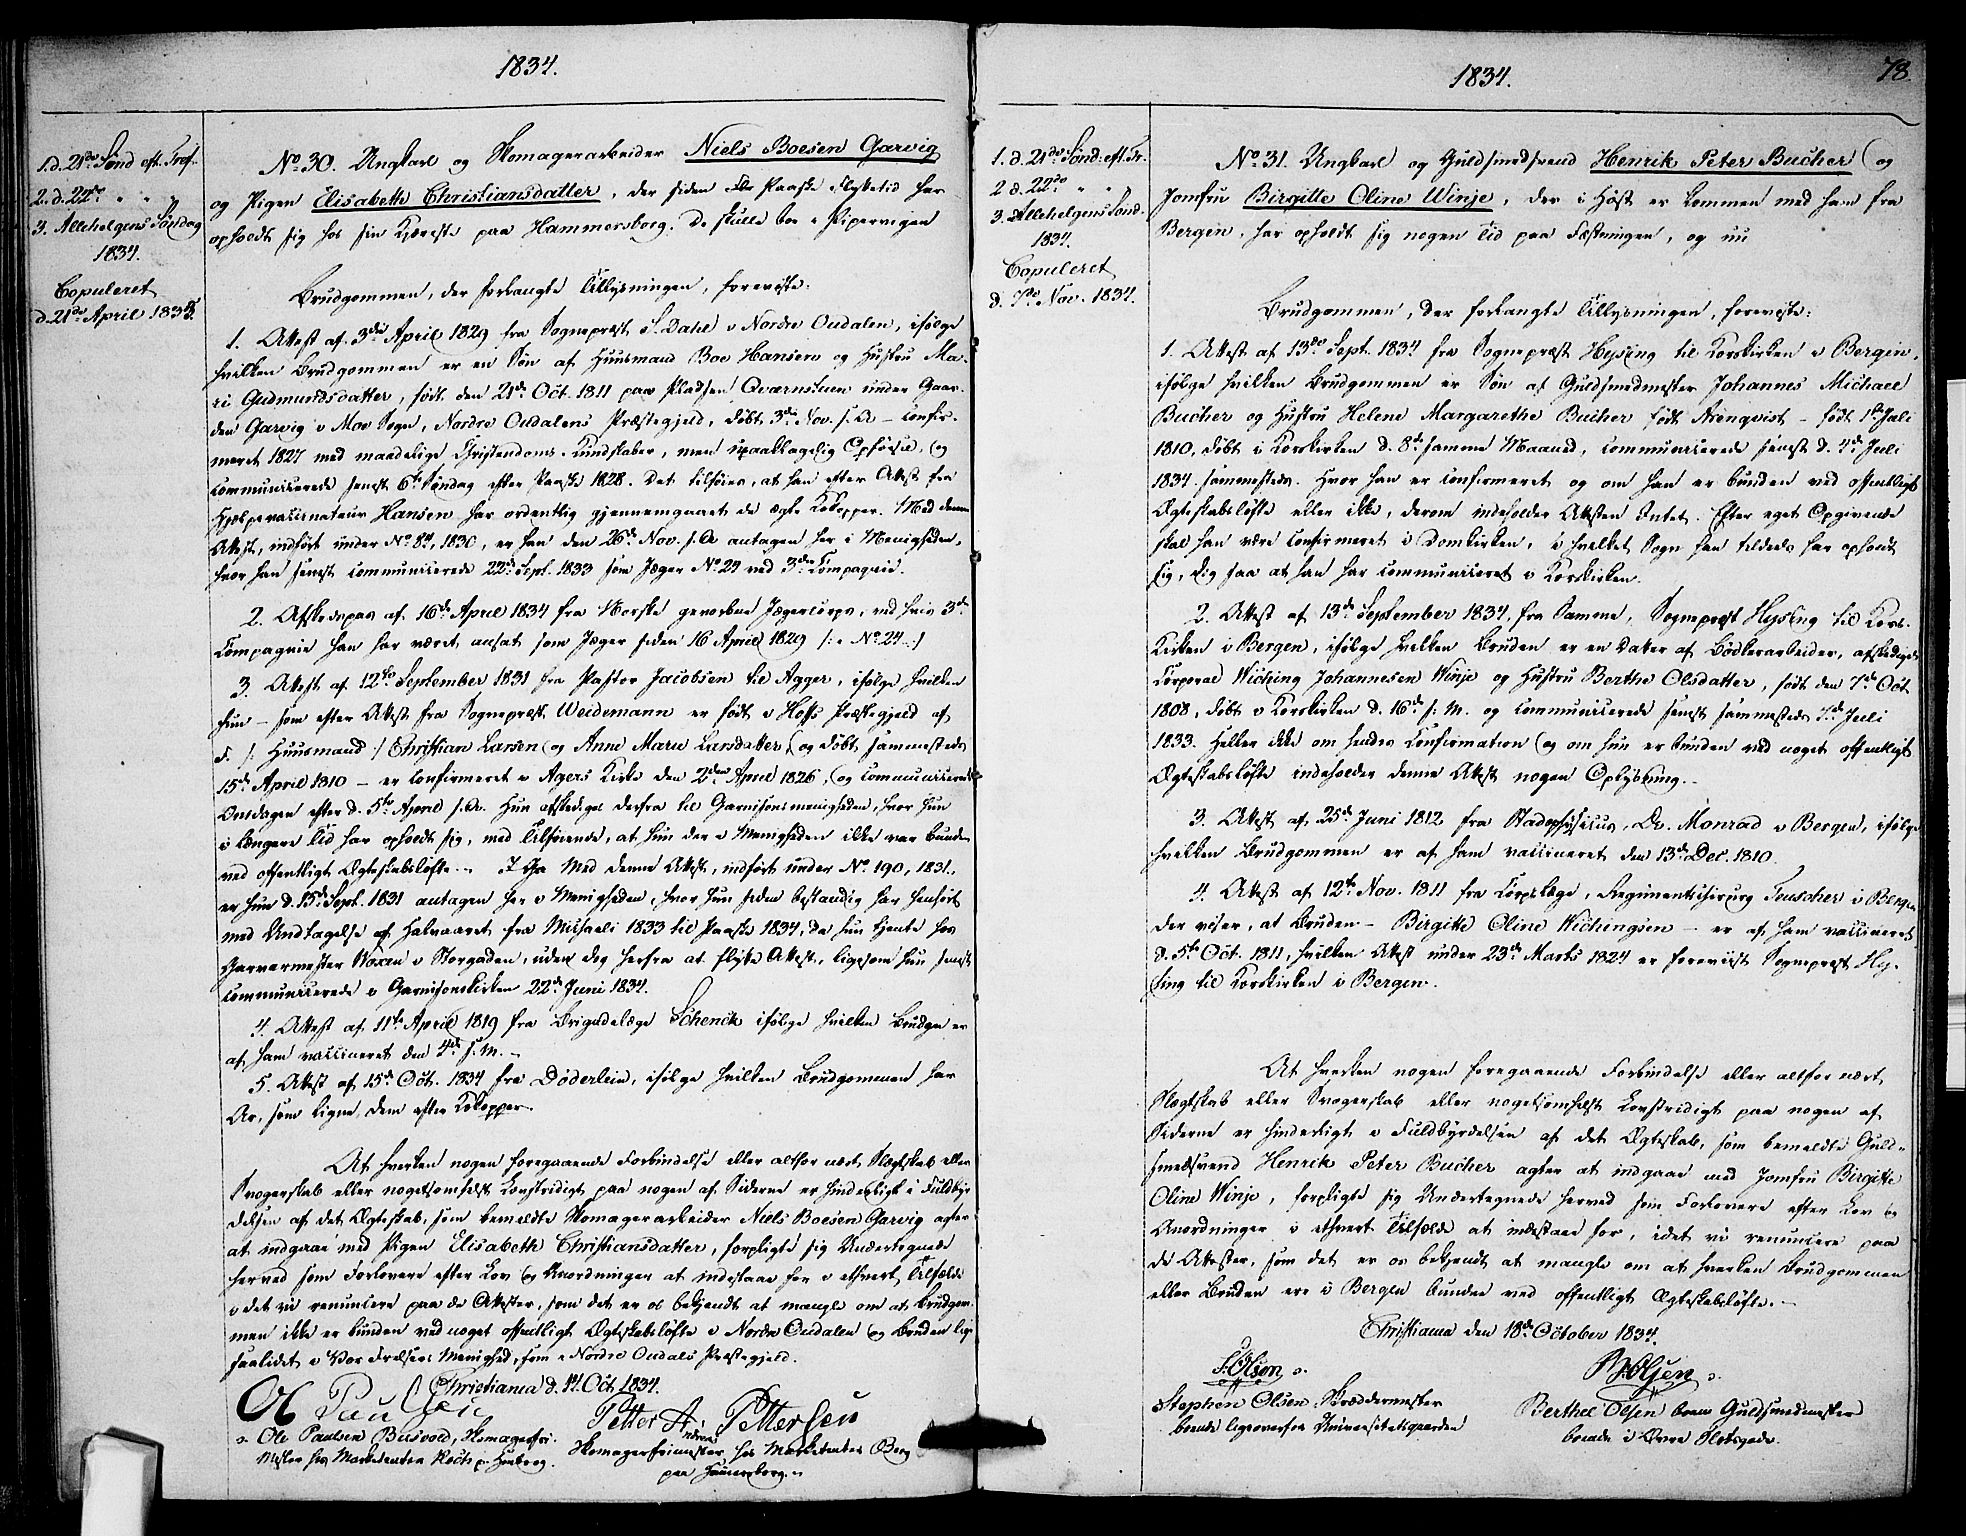 1834.
1. d. 21de Sønd. eft. Tref.
2. d. 22de " "
3. Allehelgens Søndag
1834.
Copuleret
d. 21de April 1835.
No. 30. Ungkarl og Skomagerarbeider Niels Boesen Garvig
og Pigen Elisabeth Christiansdatter, der siden Paaske Flyttetid har
opholdt sig hos sin Kjæreste paa Hammersborg. De skulle boe i Pipervigen
Brudgommen, der forlangte Tillysningen, foreviste:
1. Attest af 3die April 1829 fra Sognepræst S. Dahl i Nordre Oudalen, ifølge
hvilken Brudgommen er en Søn af Huusmand Boe Hansen og Hustru Ma-
ri Gudmundsdatter, født den 21de Oct. 1811 paa Pladsen Qværnstuen under Gaar-
den Garvig i Moe Sogn, Nordre Oudalens Præstegjeld, døbt 3die Nov. s. A. - confir-
meret 1827 med maadelige Christendoms-Kundskaber, men upaaklagelig Opførsel, og
communicerede senest 6te Søndag efter Paaske 1828. Det tilføies, at han efter Attest fra
Hjelpevaccinateur Hansen har ordentlig gjennemgaaet de ægte Kokopper. Med denne
Attest, indført under No. 84, 1830, er han den 26de Nov. s. A. antagen her i Menigheden,
hvor han senest communicerede 22de Sept. 1833 som Jæger No. 24 ved 3die Compagnie.
2. Afskedspas af 16de April 1834 fra Norske gevorbne Jægercorps, ved hvis 3die
Compagnie han har været ansat som Jæger siden 16 April 1829 /: No. 24 :/
3. Attest af 12te September 1831 fra Pastor Jacobsen til Agger, ifølge hvilken
hun - som efter Attest fra Sognepræst Weidemann er født i Hoffs Præstegjeld af
F. /: Huusmand :/ Christian Larsen og Anne Marie Larsdatter, og døbt sammesteds
15de April 1810 - er confirmeret i Agers Kirke den 2den April 1826, og communicerede
Onsdagen efter d. 5te April s. A. Hun afskediges derfra til Garnisonsmenigheden, hvor hun
i længere Tid har opholdt sig, med Tilføiende, at hun der i Menigheden ikke var bunden
ved offentligt Ægteskabsløfte. - Med denne Attest, indført under No. 190, 1831,
er hun d. 15de Sept. 1831 antagen her i Menigheden, hvor hun siden bestandig har henhørt
med Undtagelse af Halvaaret fra Michaeli 1833 til Paaske 1834, da hun tjente hos
Garvermester Boxen i Storgaden, uden dog herfra at flytte Attest, ligesom hun senest
communicerede i Garnisonskirken 22de Juni 1834.
4. Attest af 11te April 1819 fra Brigadelæge Schenck ifølge hvilken Bruden er
af ham vaccineret den 4de s. M. -
5. Attest af 15de Oct. 1834 fra Døderlein, ifølge hvilken Brudgommen har
Ar, som ligne dem efter Kokopper.
At hverken nogen foregaaende Forbindelse eller altfor nært Slægtskab eller
Svogerskab eller nogetsomhelst Lovstridigt paa nogen af Siderne er hinderligt i Fuldbyr-
delsen af det Ægteskab, som bemeldte Skomagerarbeider Niels Boesen Garvig agter
at indgaae med Pigen Elisabeth Christiansdatter, forpligte sig Undertegnede
herved som Forlovere efter Lov og Anordninger at indestaae for i ethvert Tilfælde
idet vi renuncere paa de Attester, som det er os bekjendt at mangle om at Brudgom-
men ikke er bunden ved noget offentligt Ægteskabsløfte i Nordre Oudalen og Bruden lige
saalidet i Vor Frelsers Menighed, som i Nordre Oudals Præstegjeld.
Christiania d. 14. Oct. 1834.
Ol Paulsen
Petter A. Pettersen
Ole Paulsen Busvold, Skomagerfri-
mester hos Marketenter Koch p. Hmborg.
Skomagerfrimester hos Marketenter Berg
paa Hammersborg.
1834.
78.
1. d. 21de Sønd. eft. Tr.
2. d. 22de " "
3. Allehelgens Sønd.
1834.
Copuleret
d. 7de Nov. 1834.
No. 31. Ungkarl og Guldsmedsvend Henrik Peter Bucher og
Jomfru Birgitte Oline Winje, der i Høst er kommen med ham fra
Bergen, har opholdt sig nogen Tid paa Fæstningen, og nu
Brudgommen, der forlangte Tillysningen, foreviste:
1. Attest af 13de Sept. 1834 fra Sognepræst Hysing til Korskirken i Bergen,
ifølge hvilken Brudgommen er Søn af Guldsmedmester Johannes Michael
Bucher og Hustru Helene Margarethe Bucher født Arenqvist - født 1ste Juli
1810, døbt i Korskirken d. 8de samme Maaned, communicerede senest d. 4de Juli
1834 sammesteds. Hvor han er confirmeret og om han er bunden ved offentligt
Ægteskabsløfte eller ikke, derom indeholder Attesten Intet. Efter eget Opgivende
skal han være confirmeret i Domkirken, i hvilket Sogn han tildeels har opholdt
sig, dog saa at han har communiceret i Korskirken.
2. Attest af 13de September 1834, fra Samme, Sognepræst Hysing til Kors-
Kirken i Bergen, ifølge hvilken Bruden er en Datter af Bødkerarbeider, afskediget
Corporal Wiching Johannesen Winje og Hustru Berthe Olsdatter, født den 7de Oct.
1808, døbt i Korskirken d. 16de s. M. og communicerede senest sammesteds 7de Juli
1833. Heller ikke om hendes Confirmation og om hun er bunden ved noget offentligt
Ægteskabsløfte indeholder denne Attest nogen Oplysning. -
3. Attest af 25de Juni 1812 fra Stadsphysicus, Dr. Monrad i Bergen, ifølge
hvilken Brudgommen er af ham vaccineret den 13de Dec. 1810.
4. Attest af 12te Nov. 1811 fra Corpslæge, Regimentschirurg Teuscher i Bergen
der viser, at Bruden - Birgitte Oline Wichingsen - er af ham vaccineret
d. 5te Oct. 1811, hvilken Attest under 23de Marts 1824 er foreviist Sognepræst Hy-
sing til Korskirken i Bergen.
At hverken nogen foregaaende Forbindelse eller altfor nært
Slægtskab eller Svogerskab eller nogetsomhelst Lovstridigt paa nogen af
Siderne er hinderligt i Fuldbyrdelsen af det Ægteskab, som bemeldte Guld-
smedsvend Henrik Peter Bucher agter at indgaae med Jomfru Birgitte
Oline Winje, forpligte sig Undertegnede herved som Forlovere efter Lov og
Anordninger i ethvert Tilfælde at indestaae for, idet vi renuncere paa
de Attester, som det er os bekjendt at mangle om at hverken Brudgommen
eller Bruden ere i Bergen bundne ved offentligt Ægteskabsløfte. -
Christiania den 18de October 1834.
S. Olsen
B. Olsen
Stephen Olsen, Skræddermester
boende ligeoverfor Universitetsgaarden
Berthel Olsen Guldsmedmester
boende i Øvre Slotsgade.